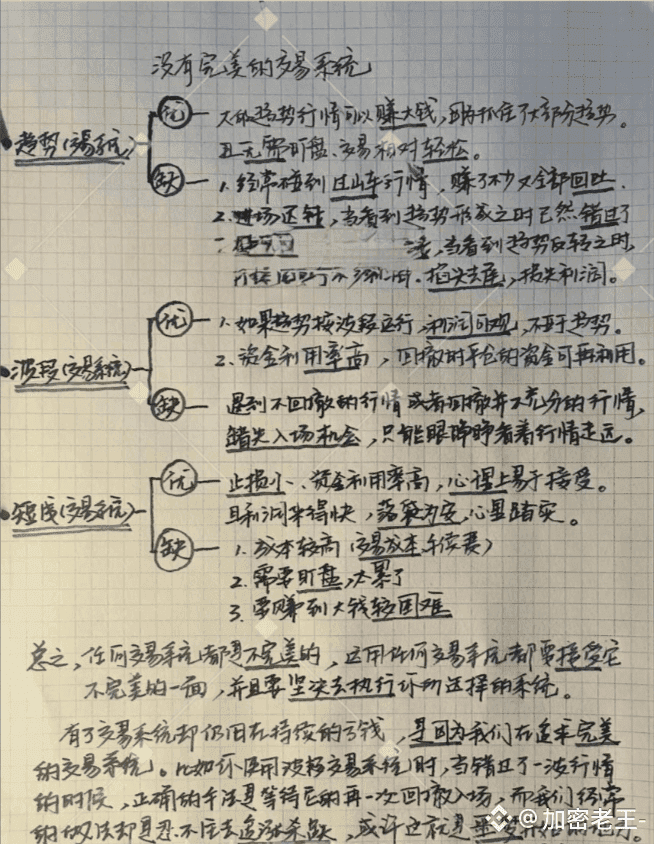 没有完美的交易系统
趋势(交易系统)
优
大的趋势行情可以赚大钱,因为抓住了大部分趋势。
且无需盯盘、交易相对轻松。
缺
1.经常碰到过山车行情,赚了不少又全部回吐.
2.进场迟钝,当看到趋势形成之时已然错过了
,当看到趋势反转之时,
掐头去尾,损失利润。
波段(交易系统)
优
1.如果趋势按波段运行,利润可观,不亚于趋势。
2.资金利用率高,回撤时平仓的资金可再利用。
缺
遇到不回撤的行情或者回撤并不充分的行情,
错失入场机会,只能眼睁睁看着行情走远。
短线(交易系统)
优
止损小、资金利用率高,心理上易于接受。
且利润来得快,落袋为安,心里踏实。
缺
1.成本较高(交易成本手续费)
2.需要盯盘,太累了
3.要赚到大钱较困难
总之,任何交易系统都是不完美的,运用任何交易系统都要接受它
不完美的一面,并且要坚决去执行你所选择的系统。
有了交易系统却仍旧在持续的亏钱,是因为我们在追求完美
的交易系统。比如你使用波段交易系统时,当错过了一波行情
的时候,正确的手法是等待它的再一次回撤入场,而我们经常
的做法却是忍不住去追涨杀跌,或许这就是
@加密老王-